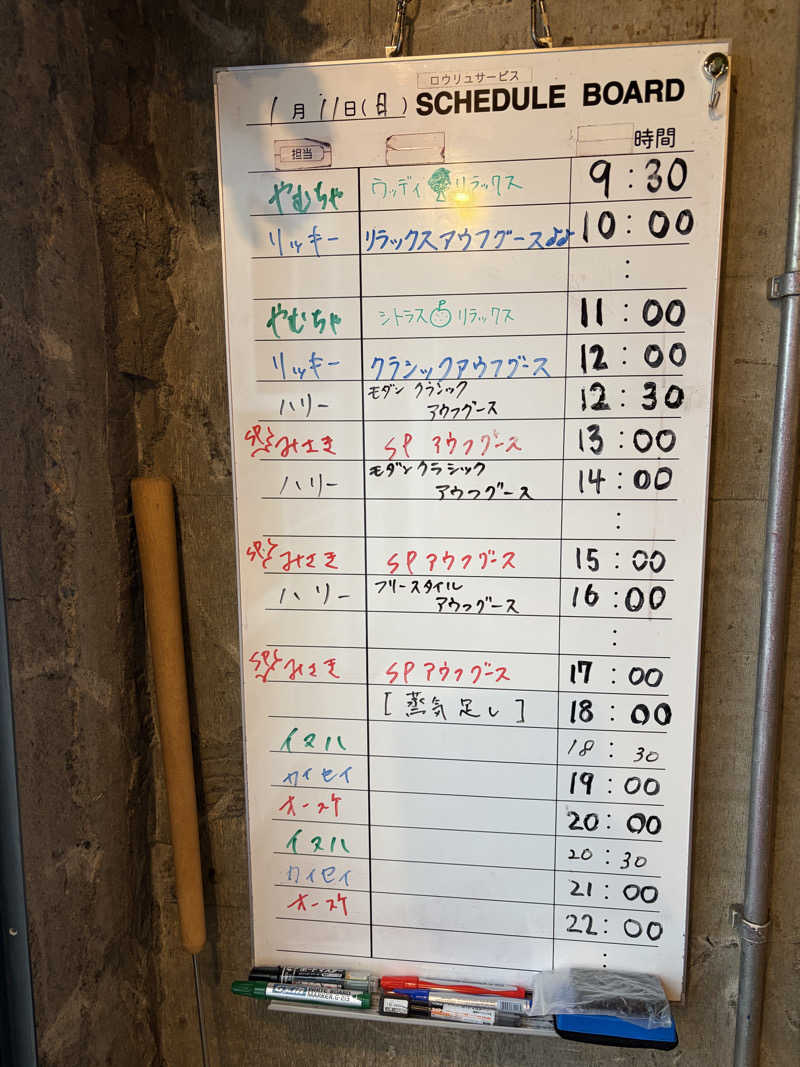 ロウリュサービス
1月11日(日) SCHEDULE BOARD
担当 時間
やむちゃ ウッディ リラックス 9:30
リッキー リラックスアウフグース♪♪ 10:00
:
やむちゃ シトラス リラックス 11:00
リッキー クラシックアウフグース 12:00
ハリー モダンクラシック 12:30
アウフグース
SP みさき SP アウフグース 13:00
ハリー モダンクラシック 14:00
アウフグース
:
SP みさき SPアウフグース 15:00
ハリー フリースタイル 16:00
アウフグース
:
SP みさき SPアウフグース 17:00
[蒸気足し] 18:00
イヌハ 18:30
カイセイ 19:00
オースケ 20:00
イヌハ 20:30
カイセイ 21:00
オースケ 22:00
: